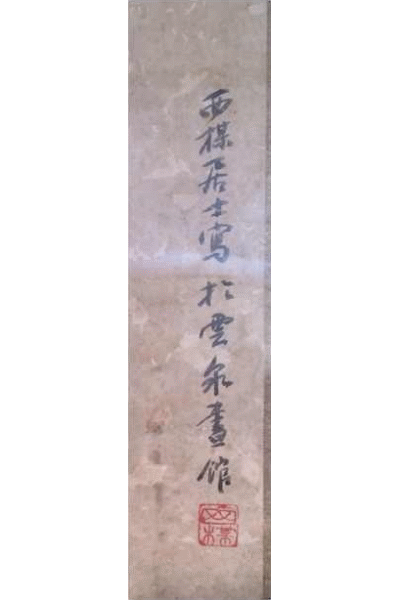 西楳居士寫於雲泉畫館